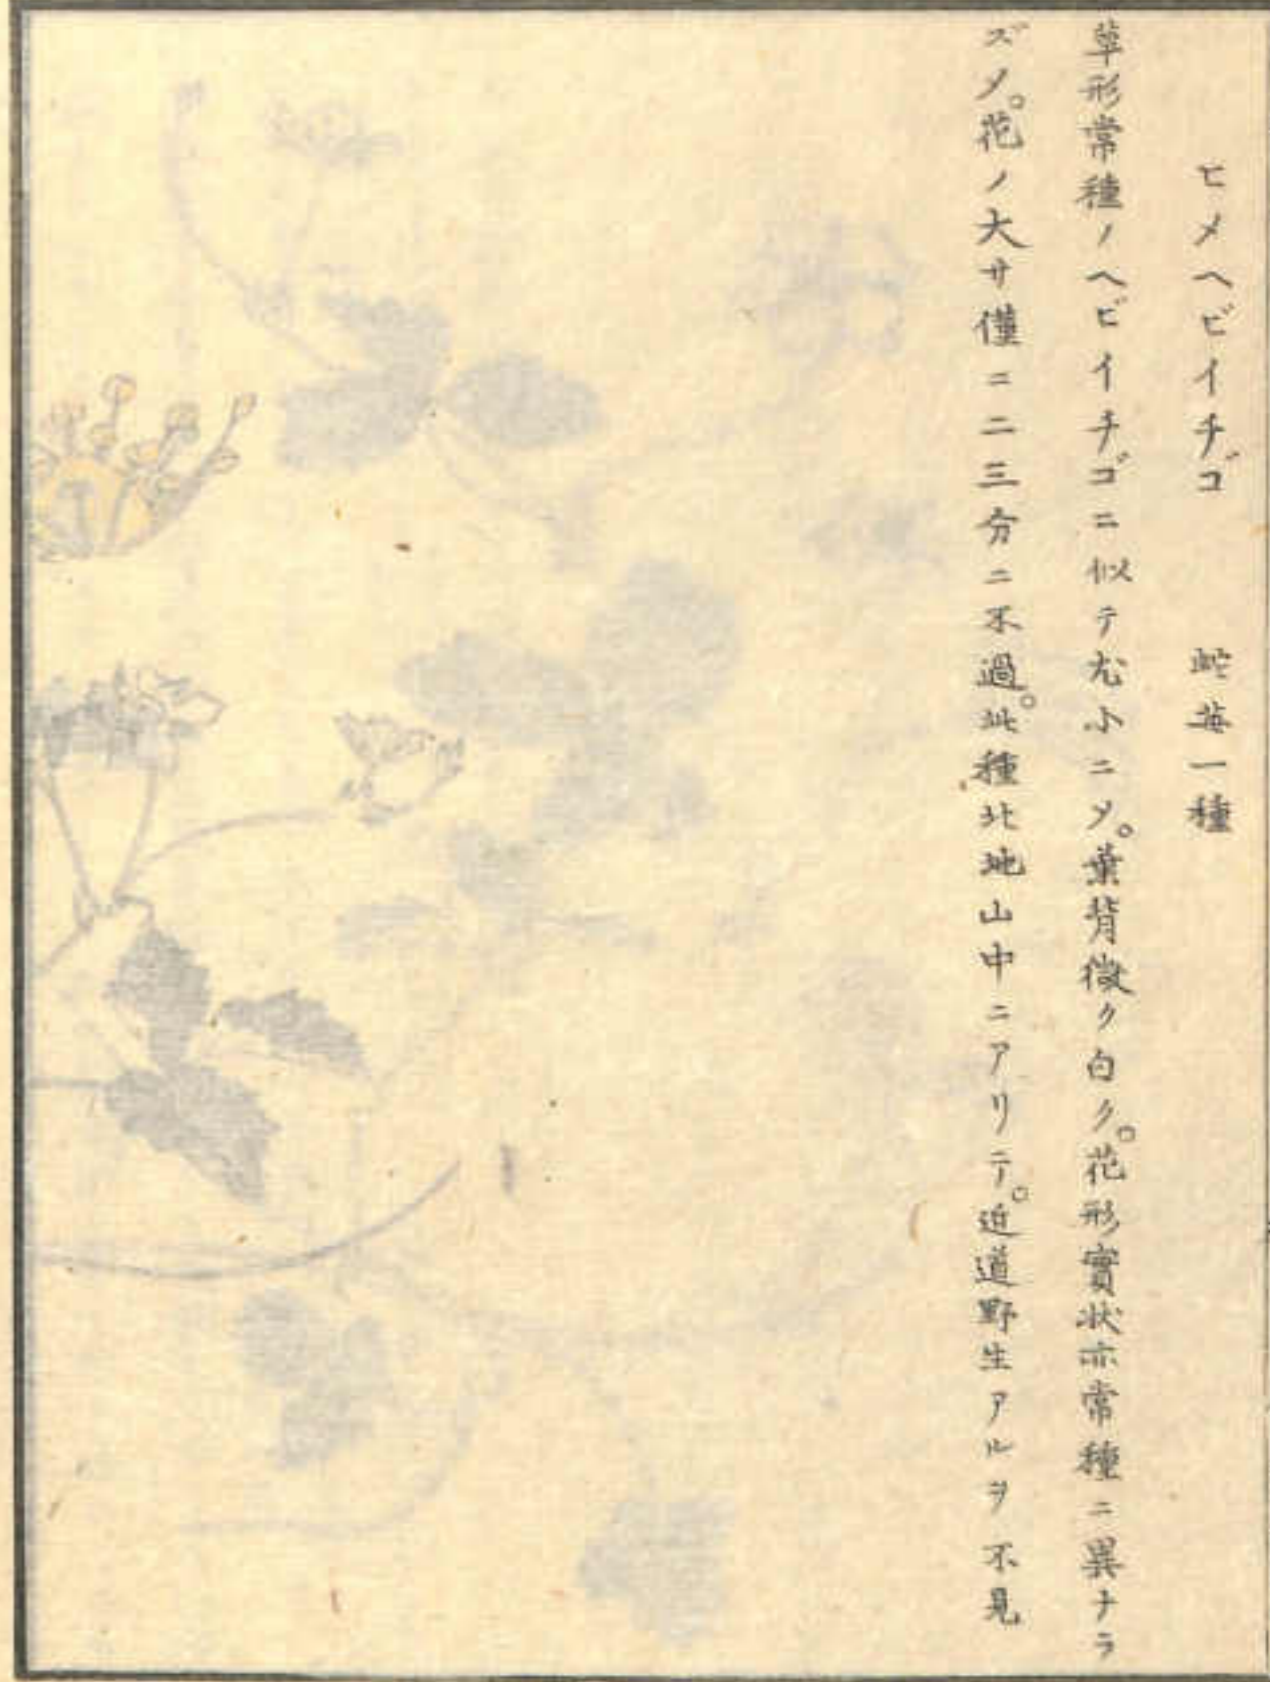 ヒメヘビイチゴ 蛇苺一種
草形常種ノヘビイチゴニ似テ尤小ニメ。葉背微ク白ク。花形實状亦常種ニ異ナラ
ズメ。花ノ大サ僅ニ二三分ニ不過。此種北地山中ニアリテ。近道野生アルヲ不見